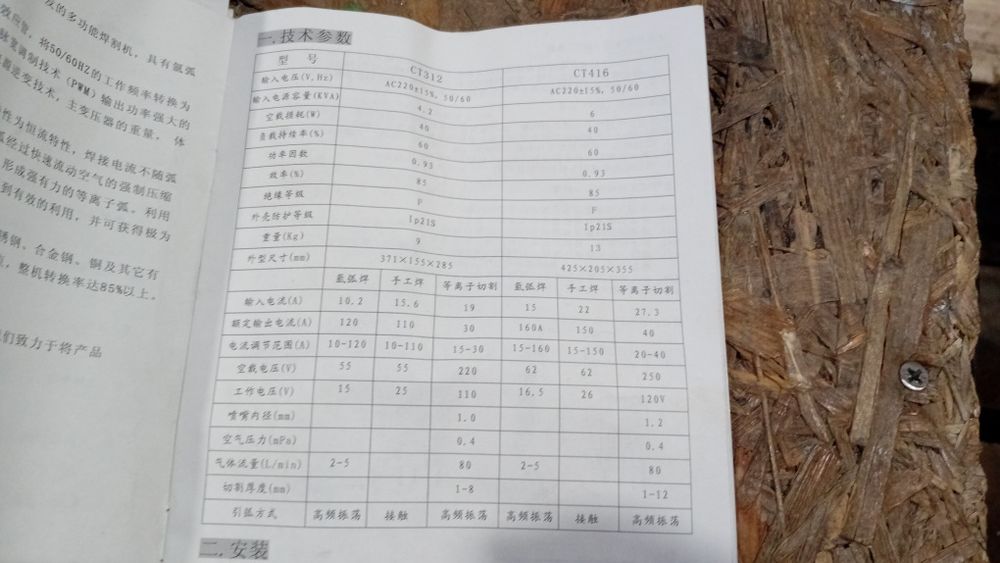 发的多功能焊割机，具有氩弧
效应管，将50/60HZ的工作频率转换为
脉宽调制技术（PWM）输出功率强大的
逆变技术，主变压器的重量、体
性为恒流特性，焊接电流不随弧
经过快速流动空气的强制压缩
形成强有力的等离子弧。利用
到有效的利用，并可获得极为
锈钢、合金钢、铜及其它有
整机转换率达85%以上，
们致力于将产品
一.技术参数
型 号 CT312 CT416
输入电压(V,Hz) AC220±15%, 50/60 AC220±15%, 50/60
输入电源容量(KVA) 4.2 6
空载损耗(W) 40 40
负载持续率(%) 60 60
功率因数 0.93 0.93
效率(%) 85 85
绝缘等级 F F
外壳防护等级 Ip21S Ip21S
重量(Kg) 9 13
外型尺寸(mm) 371×155×285 425×205×355
氩弧焊 手工焊 等离子切割 氩弧焊 手工焊 等离子切割
输入电流(A) 10.2 15.6 19 15 22 27.3
额定输出电流(A) 120 110 30 160A 150 40
电流调节范围(A) 10-120 10-110 15-30 15-160 15-150 20-40
空载电压(V) 55 55 220 62 62 250
工作电压(V) 15 25 110 16.5 26 120V
喷嘴内径(mm) 1.0 1.2
空气压力(mPa) 0.4 0.4
气体流量(L/min) 2-5 80 2-5 80
切割厚度(mm) 1-8 1-12
引弧方式 高频振荡 接触 高频振荡 高频振荡 接触 高频振荡
二.安装